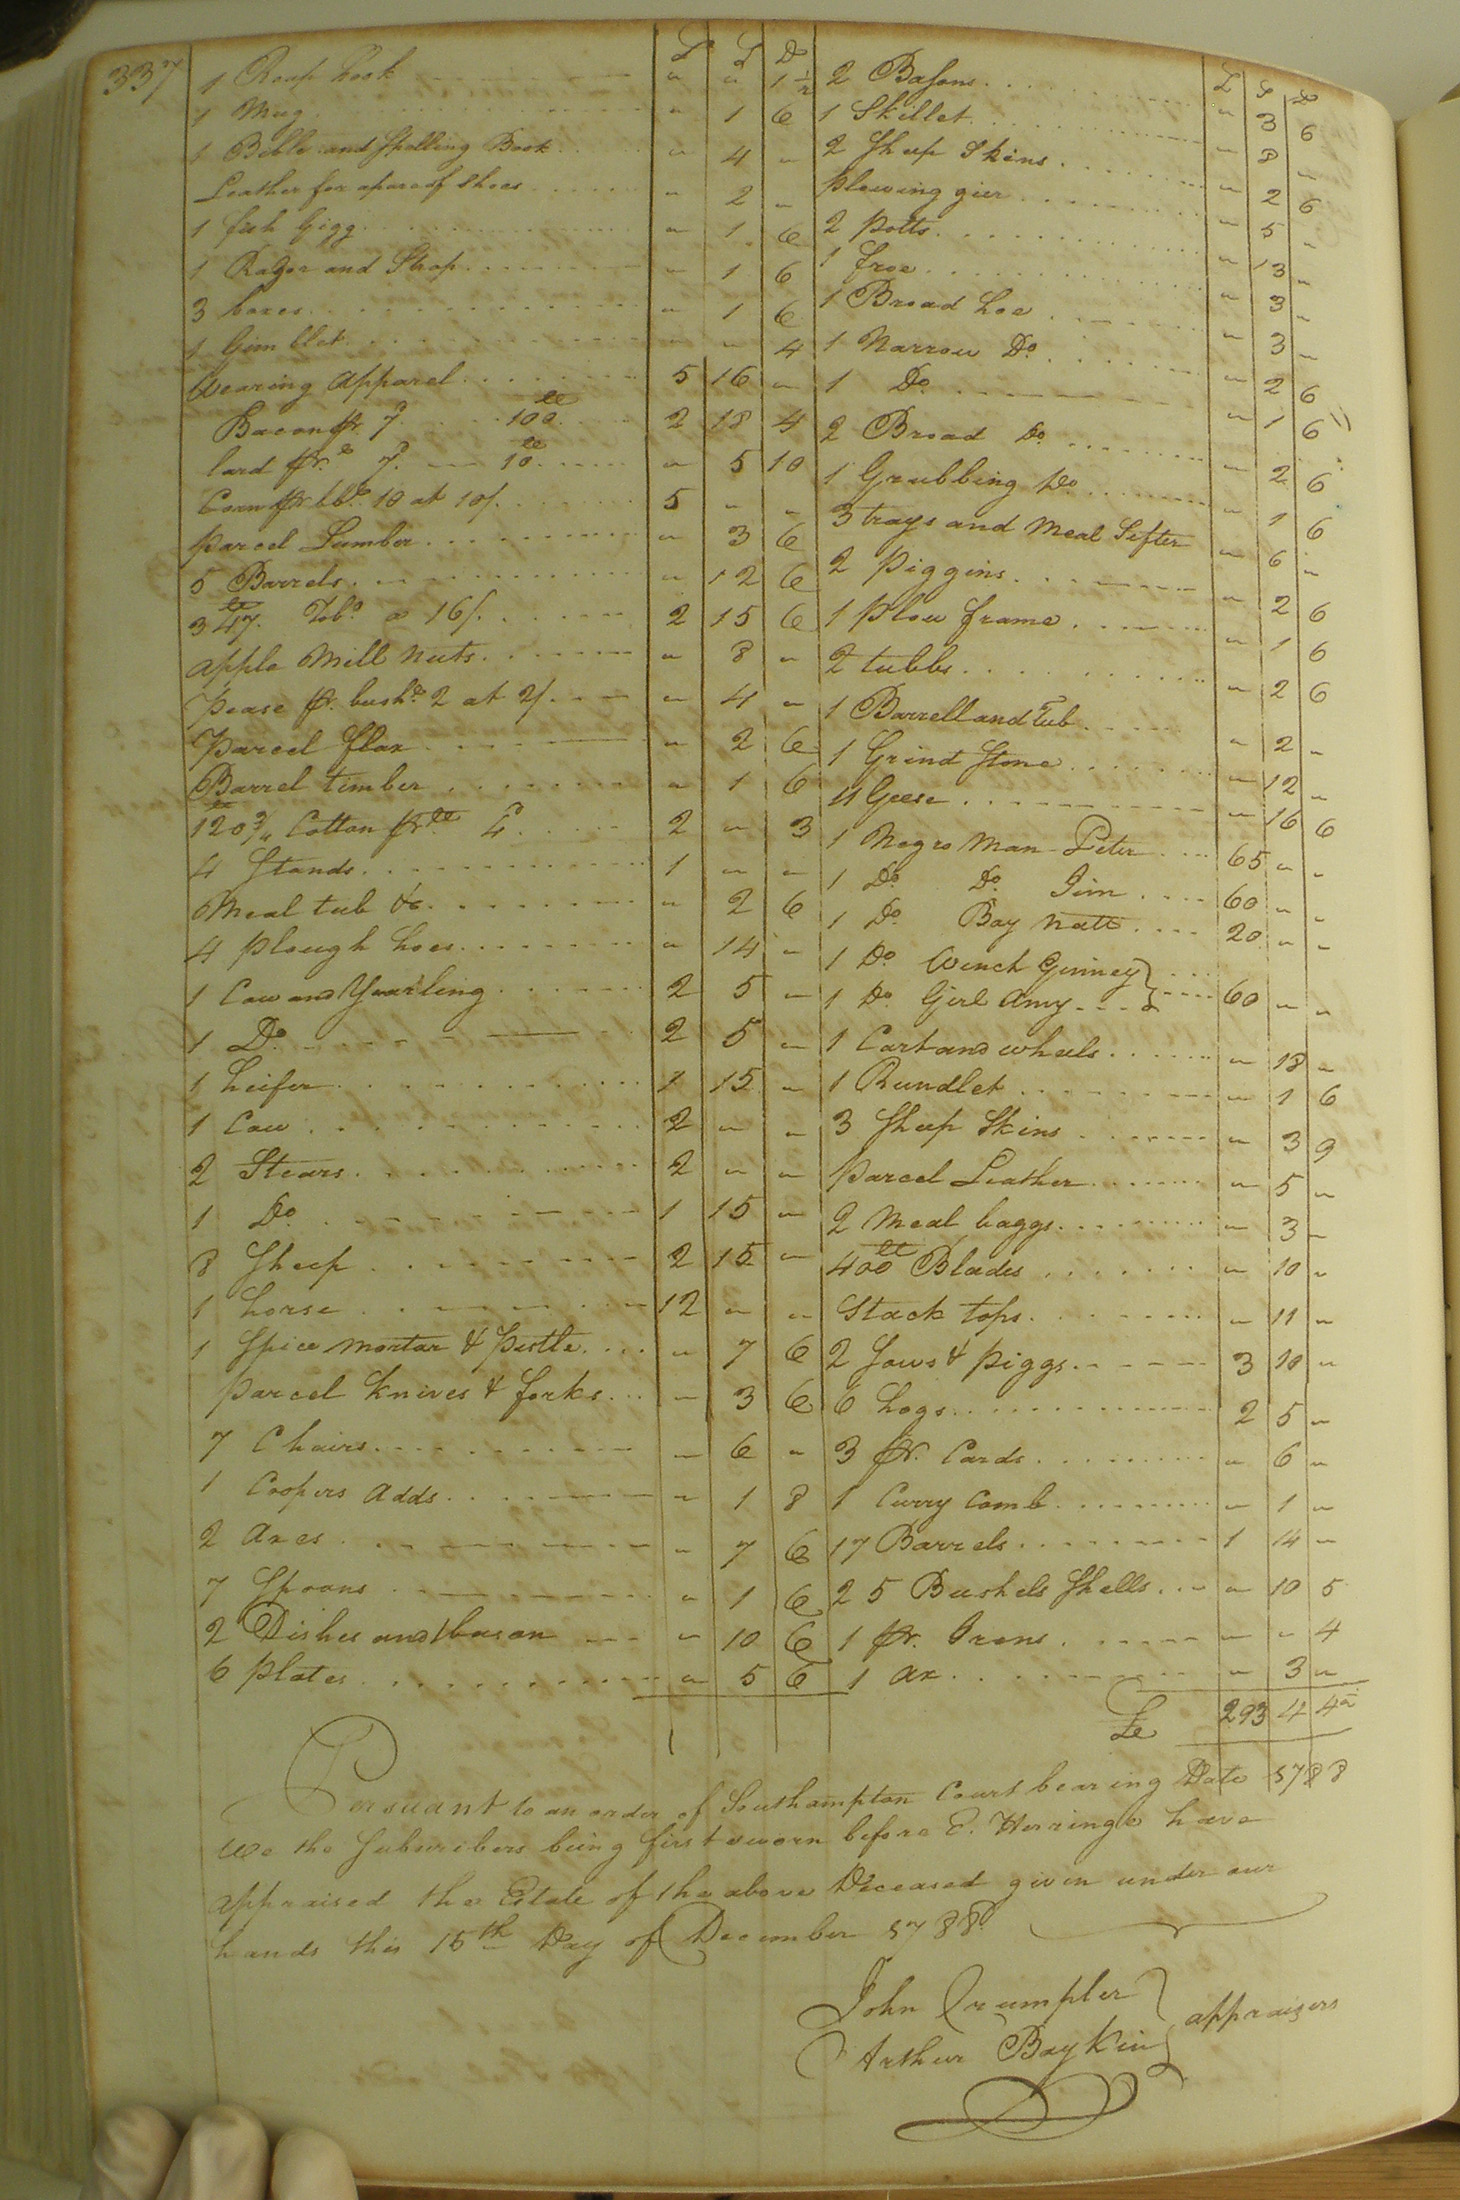 337
£ S D
1 Reap hook " " 1½
1 Mug " 1 6
1 Bible and Spelling Book " 4 "
Leather for apare of Shoes " 2 "
1 fish Gigg " 1 6
1 Razor and Strap " 1 6
3 boxes " 1 6
1 Gimblet " " 4
Wearing Apparel 5 16 "
Bacon pr. 7d 100lb 2 18 4
lard pr. lb 7d 10lb " 5 10
Corn pr bbl 10 at 10/. 5 " "
parcel Lumber " 3 6
5 Barrels " 12 6
347lb Tobo a 16/. 2 15 6
apple Mill Nuts " 8 "
Pease pr. bushl 2 at 2/. " 4 "
Parcel flax " 2 6
Barrel timber " 1 6
120¾lb Cotton pr lb 4d 2 " 3
4 Stands 1 " "
Meal tub &c " 2 6
4 plough hoes " 14 "
1 Cow and Yearling 2 5 "
1 Do 2 5 "
1 heifer 1 15 "
1 Cow 2 " "
2 Stears 2 " "
1 Do 1 15 "
8 Sheep 2 15 "
1 horse 12 " "
1 Spice mortar & Pistle " 7 6
parcel knives & forks " 3 6
7 Chairs " 6 "
1 Coopers Adds " 1 8
2 Axes " 7 6
7 Spoons " 1 6
2 Dishes and bason " 10 6
6 plates " 5 6
£ S D
2 Basons " 3 6
1 Skillet " 8 "
2 Sheep Skins " 2 6
plowing gier " 5 "
2 potts " 13 "
1 froe " 3 "
1 Broad hoe " 3 "
1 Narrow Do " 2 6
1 Do " 1 6
2 Broad Do " 2 6
1 Grubbing Do " 1 6
3 trays and Meal Sifter " 6 "
2 Piggins " 2 6
1 Plow frame " 1 6
2 tubbs " 2 6
1 Barrell and Tub " 2 "
1 Grind Stone " 12 "
11 Geese " 16 6
1 Negro Man Peter 65 " "
1 Do Do Jim 60 " "
1 Do Boy Natt 20 " "
1 Do Wench Ginney
1 Do Girl Amy 60 " "
1 Cart and wheels " 18 "
1 Rundlet " 1 6
3 Sheep Skins " 3 9
parcel Leather " 5 "
2 Meal baggs " 3 "
400lb Blades " 10 "
Stack tops " 11 "
2 Sows & piggs 3 10 "
6 hogs 2 5 "
3 pr. Cards " 6 "
1 Curry Comb " 1 "
17 Barrels 1 14 "
25 Bushels Shells " 10 5
1 pr. Irons " " 4
1 ax " 3 "
£ 293 4 4½
Persuant to an order of Southampton Court bearing Date 1788
We the Subscribers being first sworn before E. Herring have
appraised the Estate of the above Deceased given under our
hands this 15th Day of December 1788.
John Crumpler
Arthur Boykin
appraisers